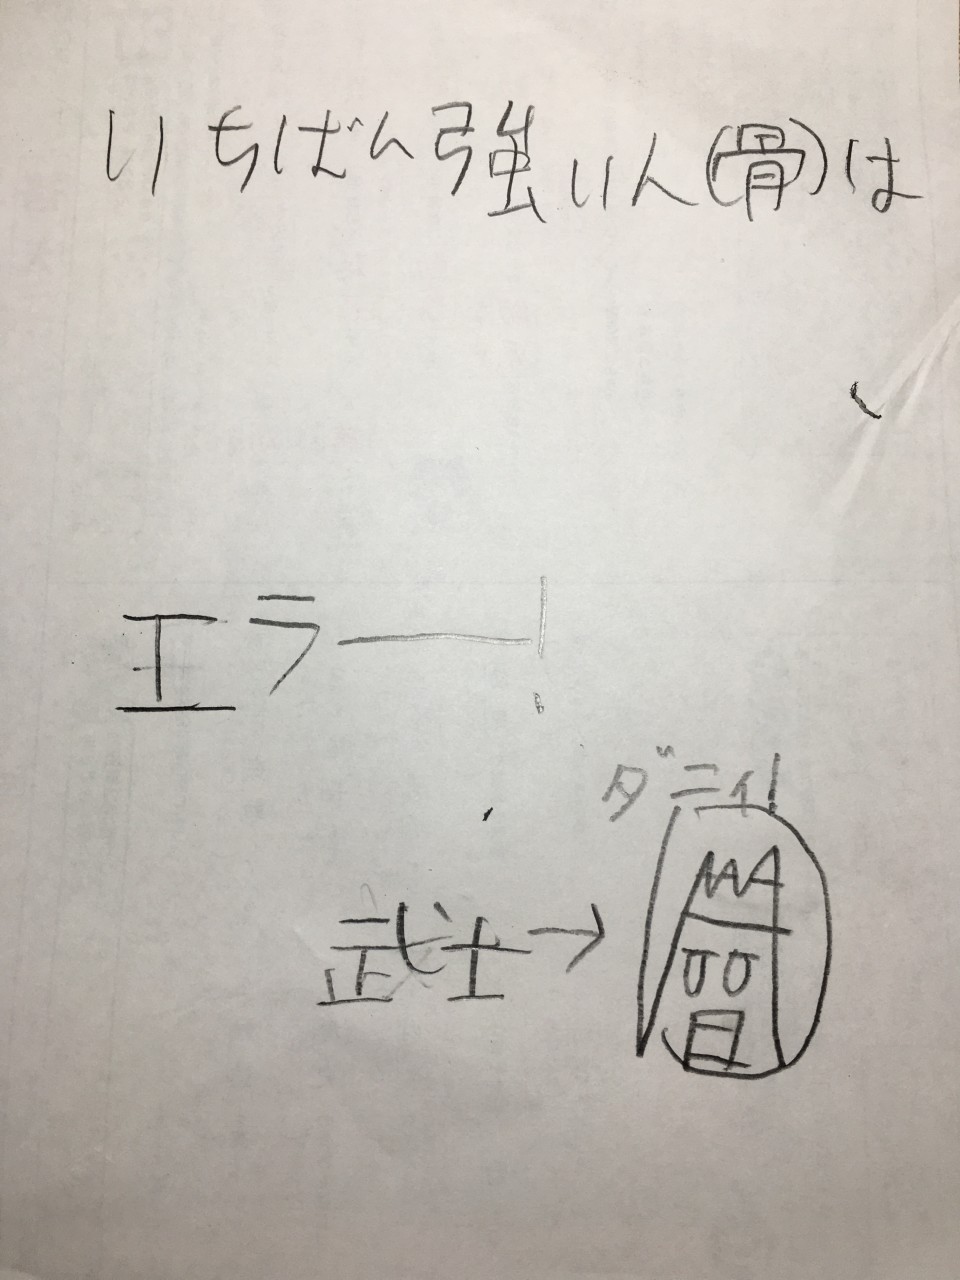 いちばん強い人(骨)は
エラー!
ダニィ!
武士→